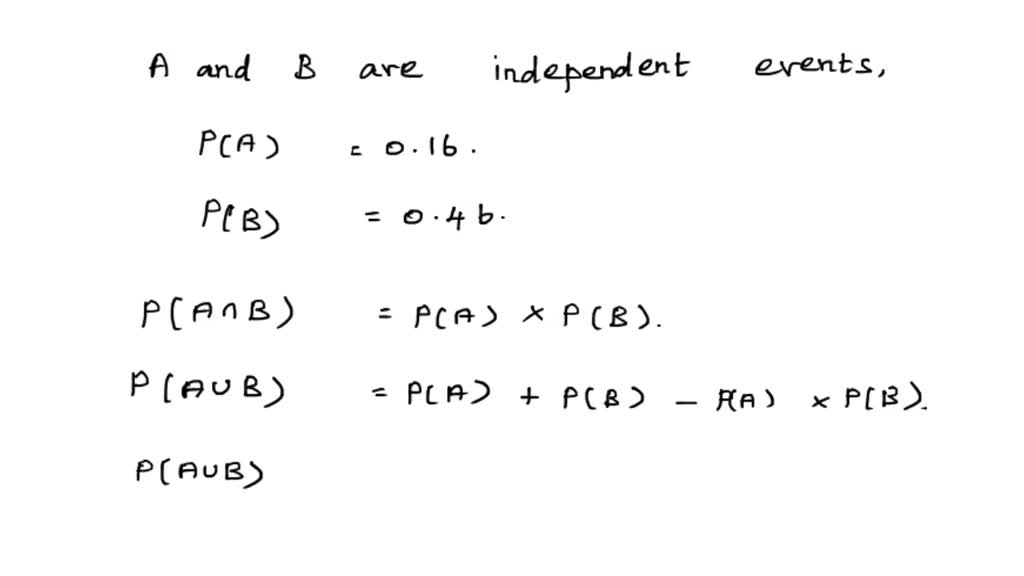 A and B are independent events,
P(A) = 0.16.
P(B) = 0.46.
P(A∩B) = P(A) × P(B).
P(A∪B) = P(A) + P(B) – P(A) × P(B).
P(A∪B)